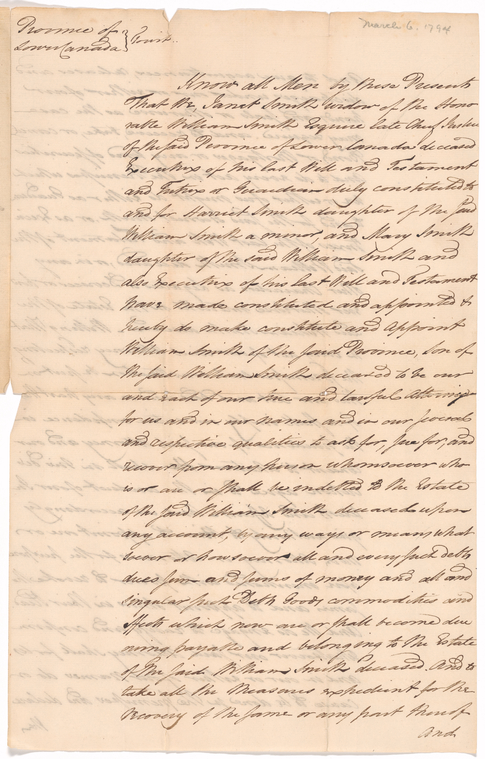 March 6. 1794
Province of } Scirit.
Lower Canada }
Know all Men by these Presents
That We, Janet Smith widow of the Hono-
rable William Smith Esquire late Chief Justice
of the said Province of Lower Canada deceased
Executrix of his last Will and Testament
and Tutrix or Guardian duly constituted to
and for Harriet Smith daughter of the said
William Smith a minor, and Mary Smith
daughter of the said William Smith and
also Executrix of his last Will and Testament
have made constituted and appointed &
hereby do make constitute and appoint
William Smith of the said Province, Son of
the said William Smith deceased to be our
and each of our true and lawful Attorney
for us and in our names and in our several
and respective qualities to ask for, sue for, and
recover from any person whomsoever who
is or are or shall be indebted to the Estate
of the said William Smith deceased upon
any account, by any ways or means what
soever or howsoever all and every such debts
dues sum and sums of money and all and
singular such Debts Goods commodities and
effects which now are or shall become due
owing payable and belonging to the Estate
of the said William Smith deceased. And to
take all the Measures expedient for the
recovery of the same or any part thereof
And